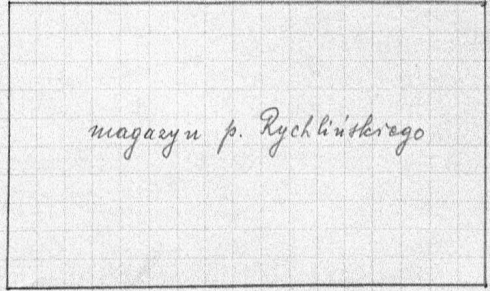 magazyn p. Rychlińskiego